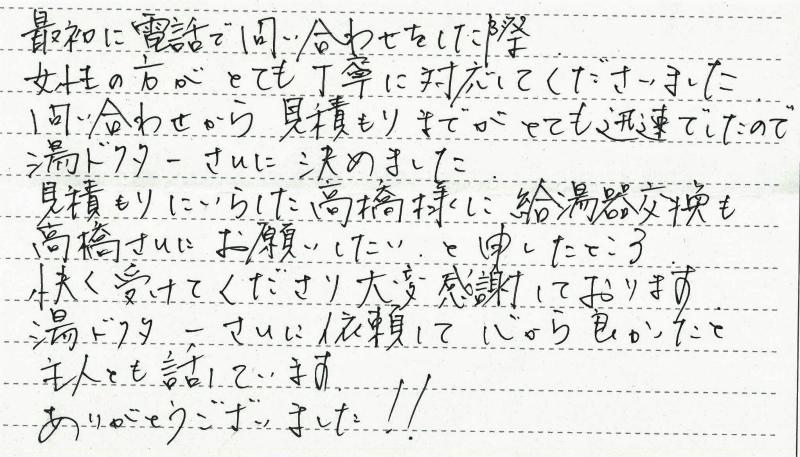 最初に電話で問い合わせをした際
女性の方がとても丁寧に対応してくださいました
問い合わせから見積もりまでがとても迅速でしたので
湯ドクターさんに決めました
見積もりにいらした高橋様に給湯器交換も
高橋さんにお願いしたい。と申したところ
快く受けてくださり大変感謝しております
湯ドクターさんに依頼して心から良かったと
主人とも話しています
ありがとうございました!!